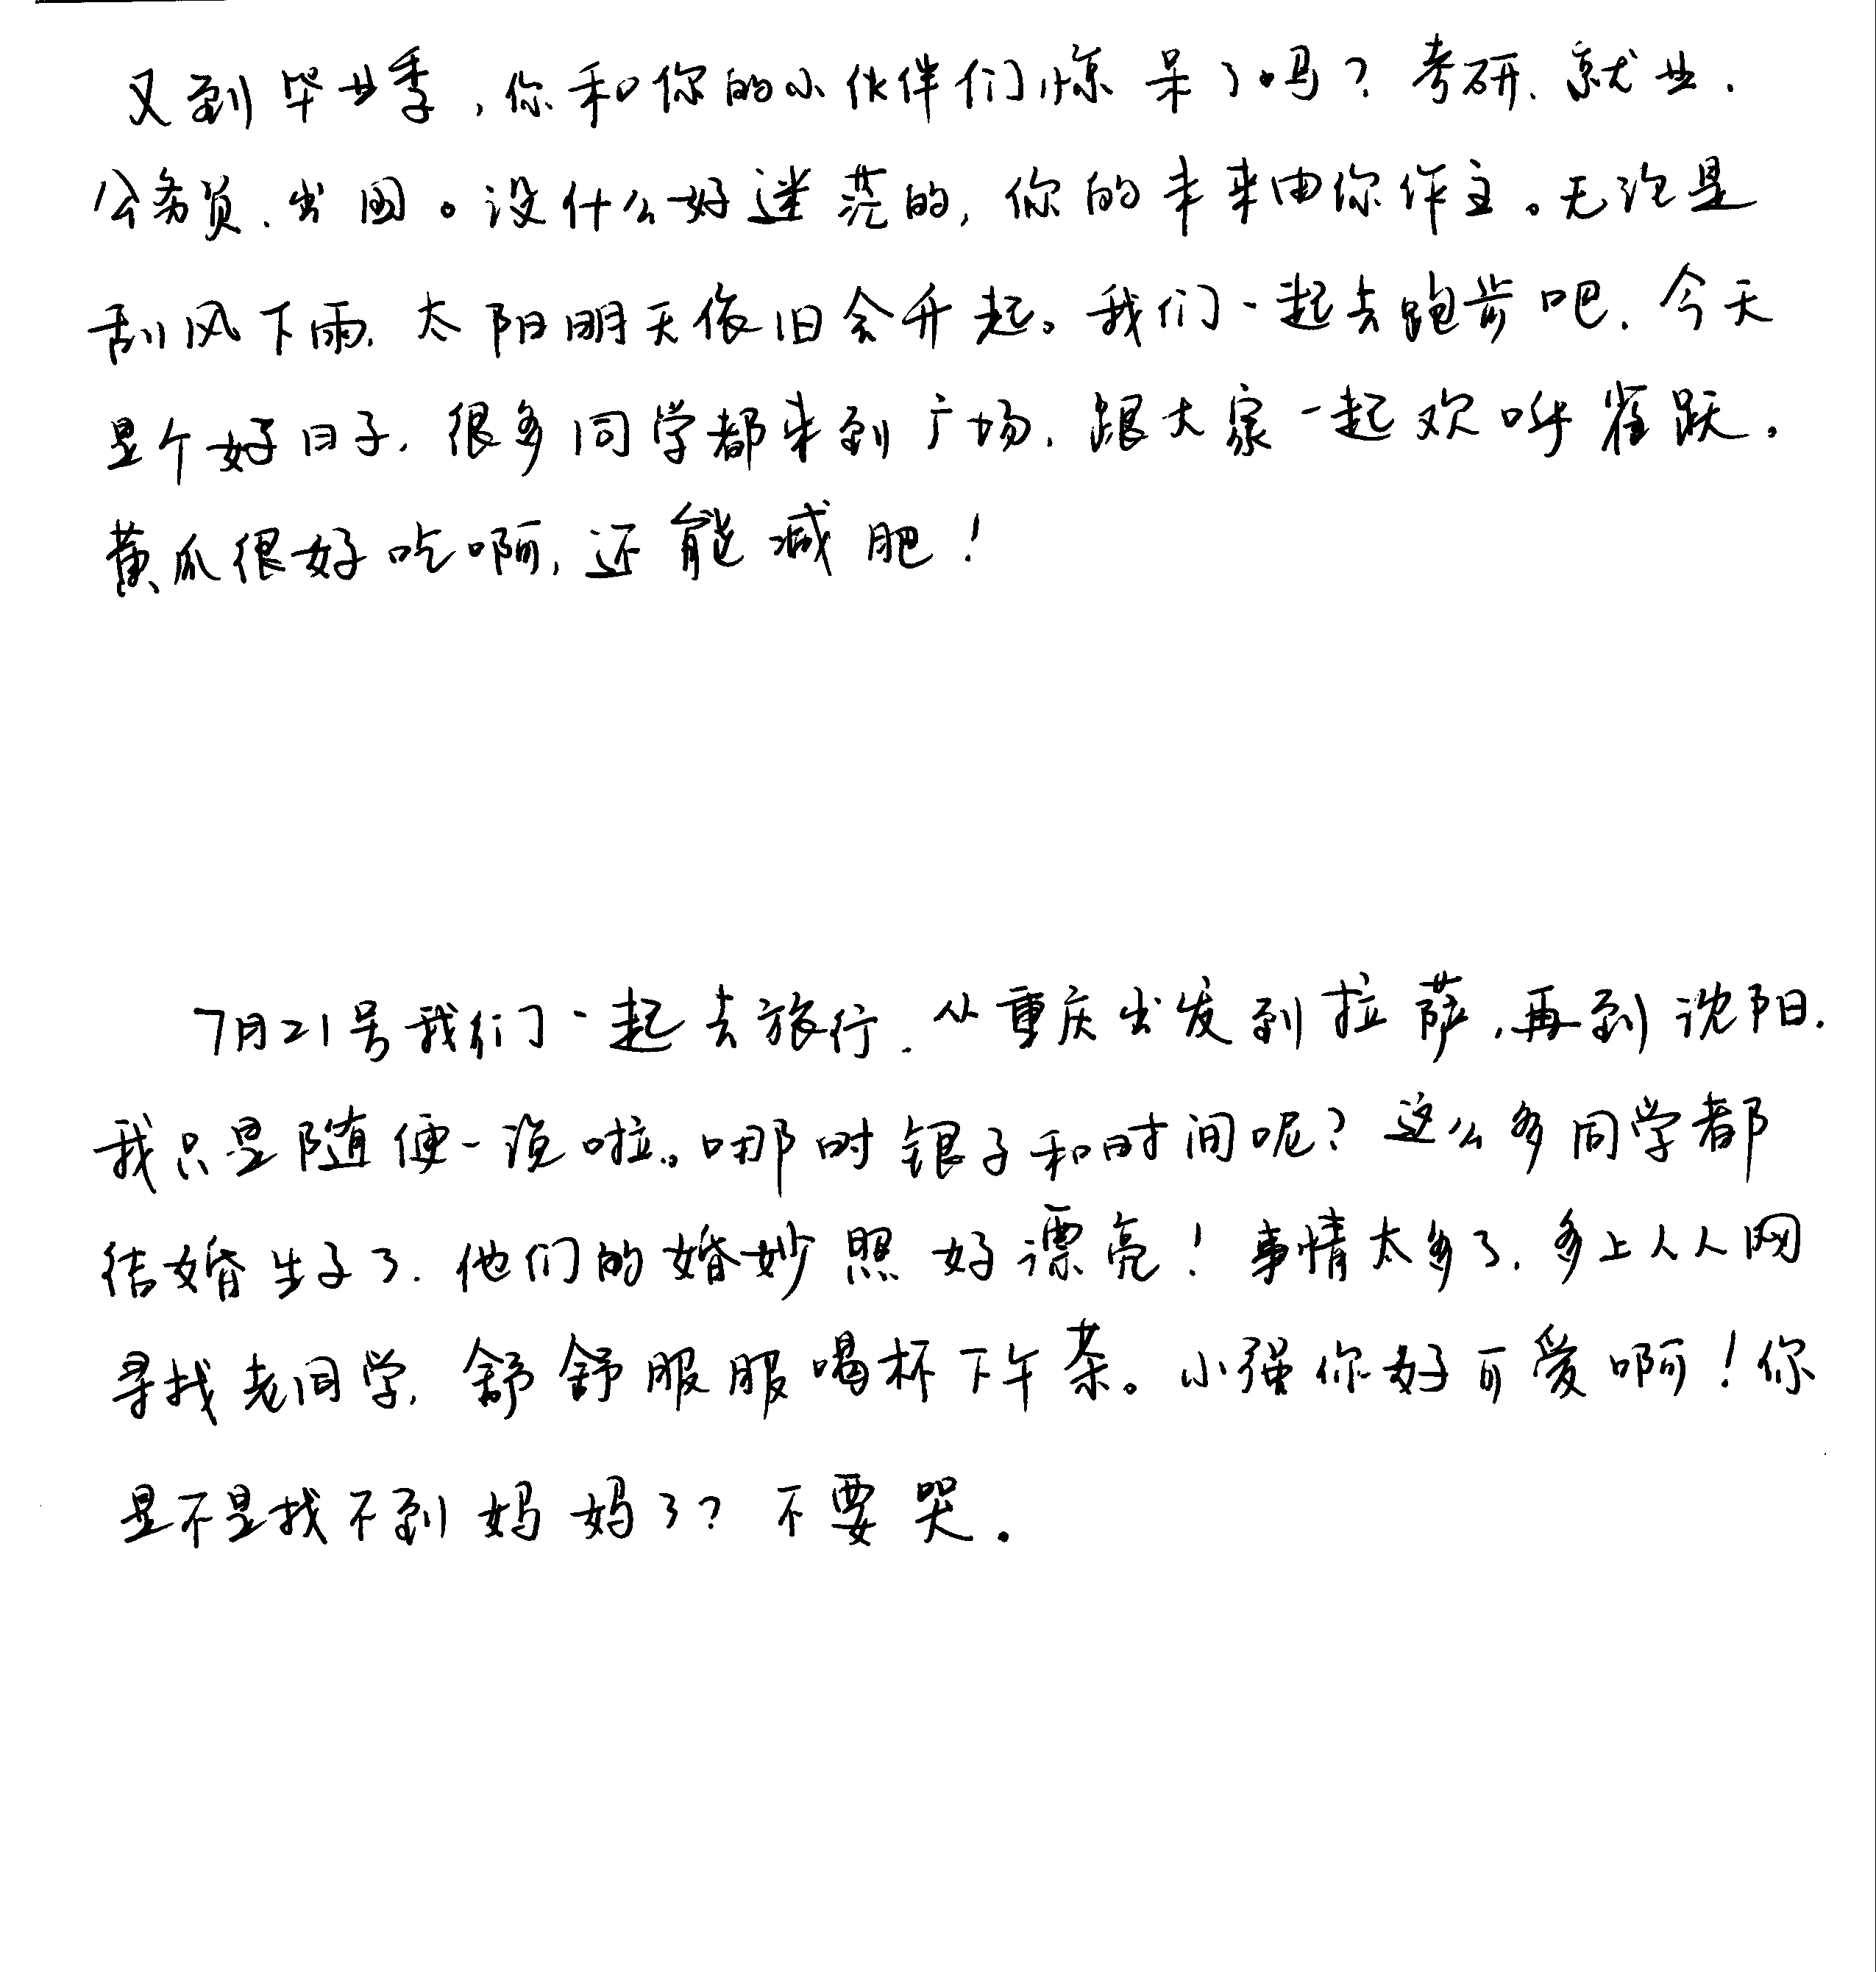 又到毕业季，你和你的小伙伴们惊呆了吗？考研、就业、
公务员、出国。没什么好迷茫的，你的未来由你作主。无论是
刮风下雨，太阳明天依旧会升起。我们一起去跑步吧，今天
是个好日子，很多同学都来到广场，跟大家一起欢呼雀跃。
黄瓜很好吃啊，还能减肥！
7月21号我们一起去旅行，从重庆出发到拉萨，再到沈阳.
我只是随便一说啦。哪时银子和时间呢？这么多同学都
结婚生子了，他们的婚妙照好漂亮！事情太多了，多上人人网
寻找老同学，舒舒服服喝杯下午茶。小强你好可爱啊！你
是不是找不到妈妈了？不要哭.